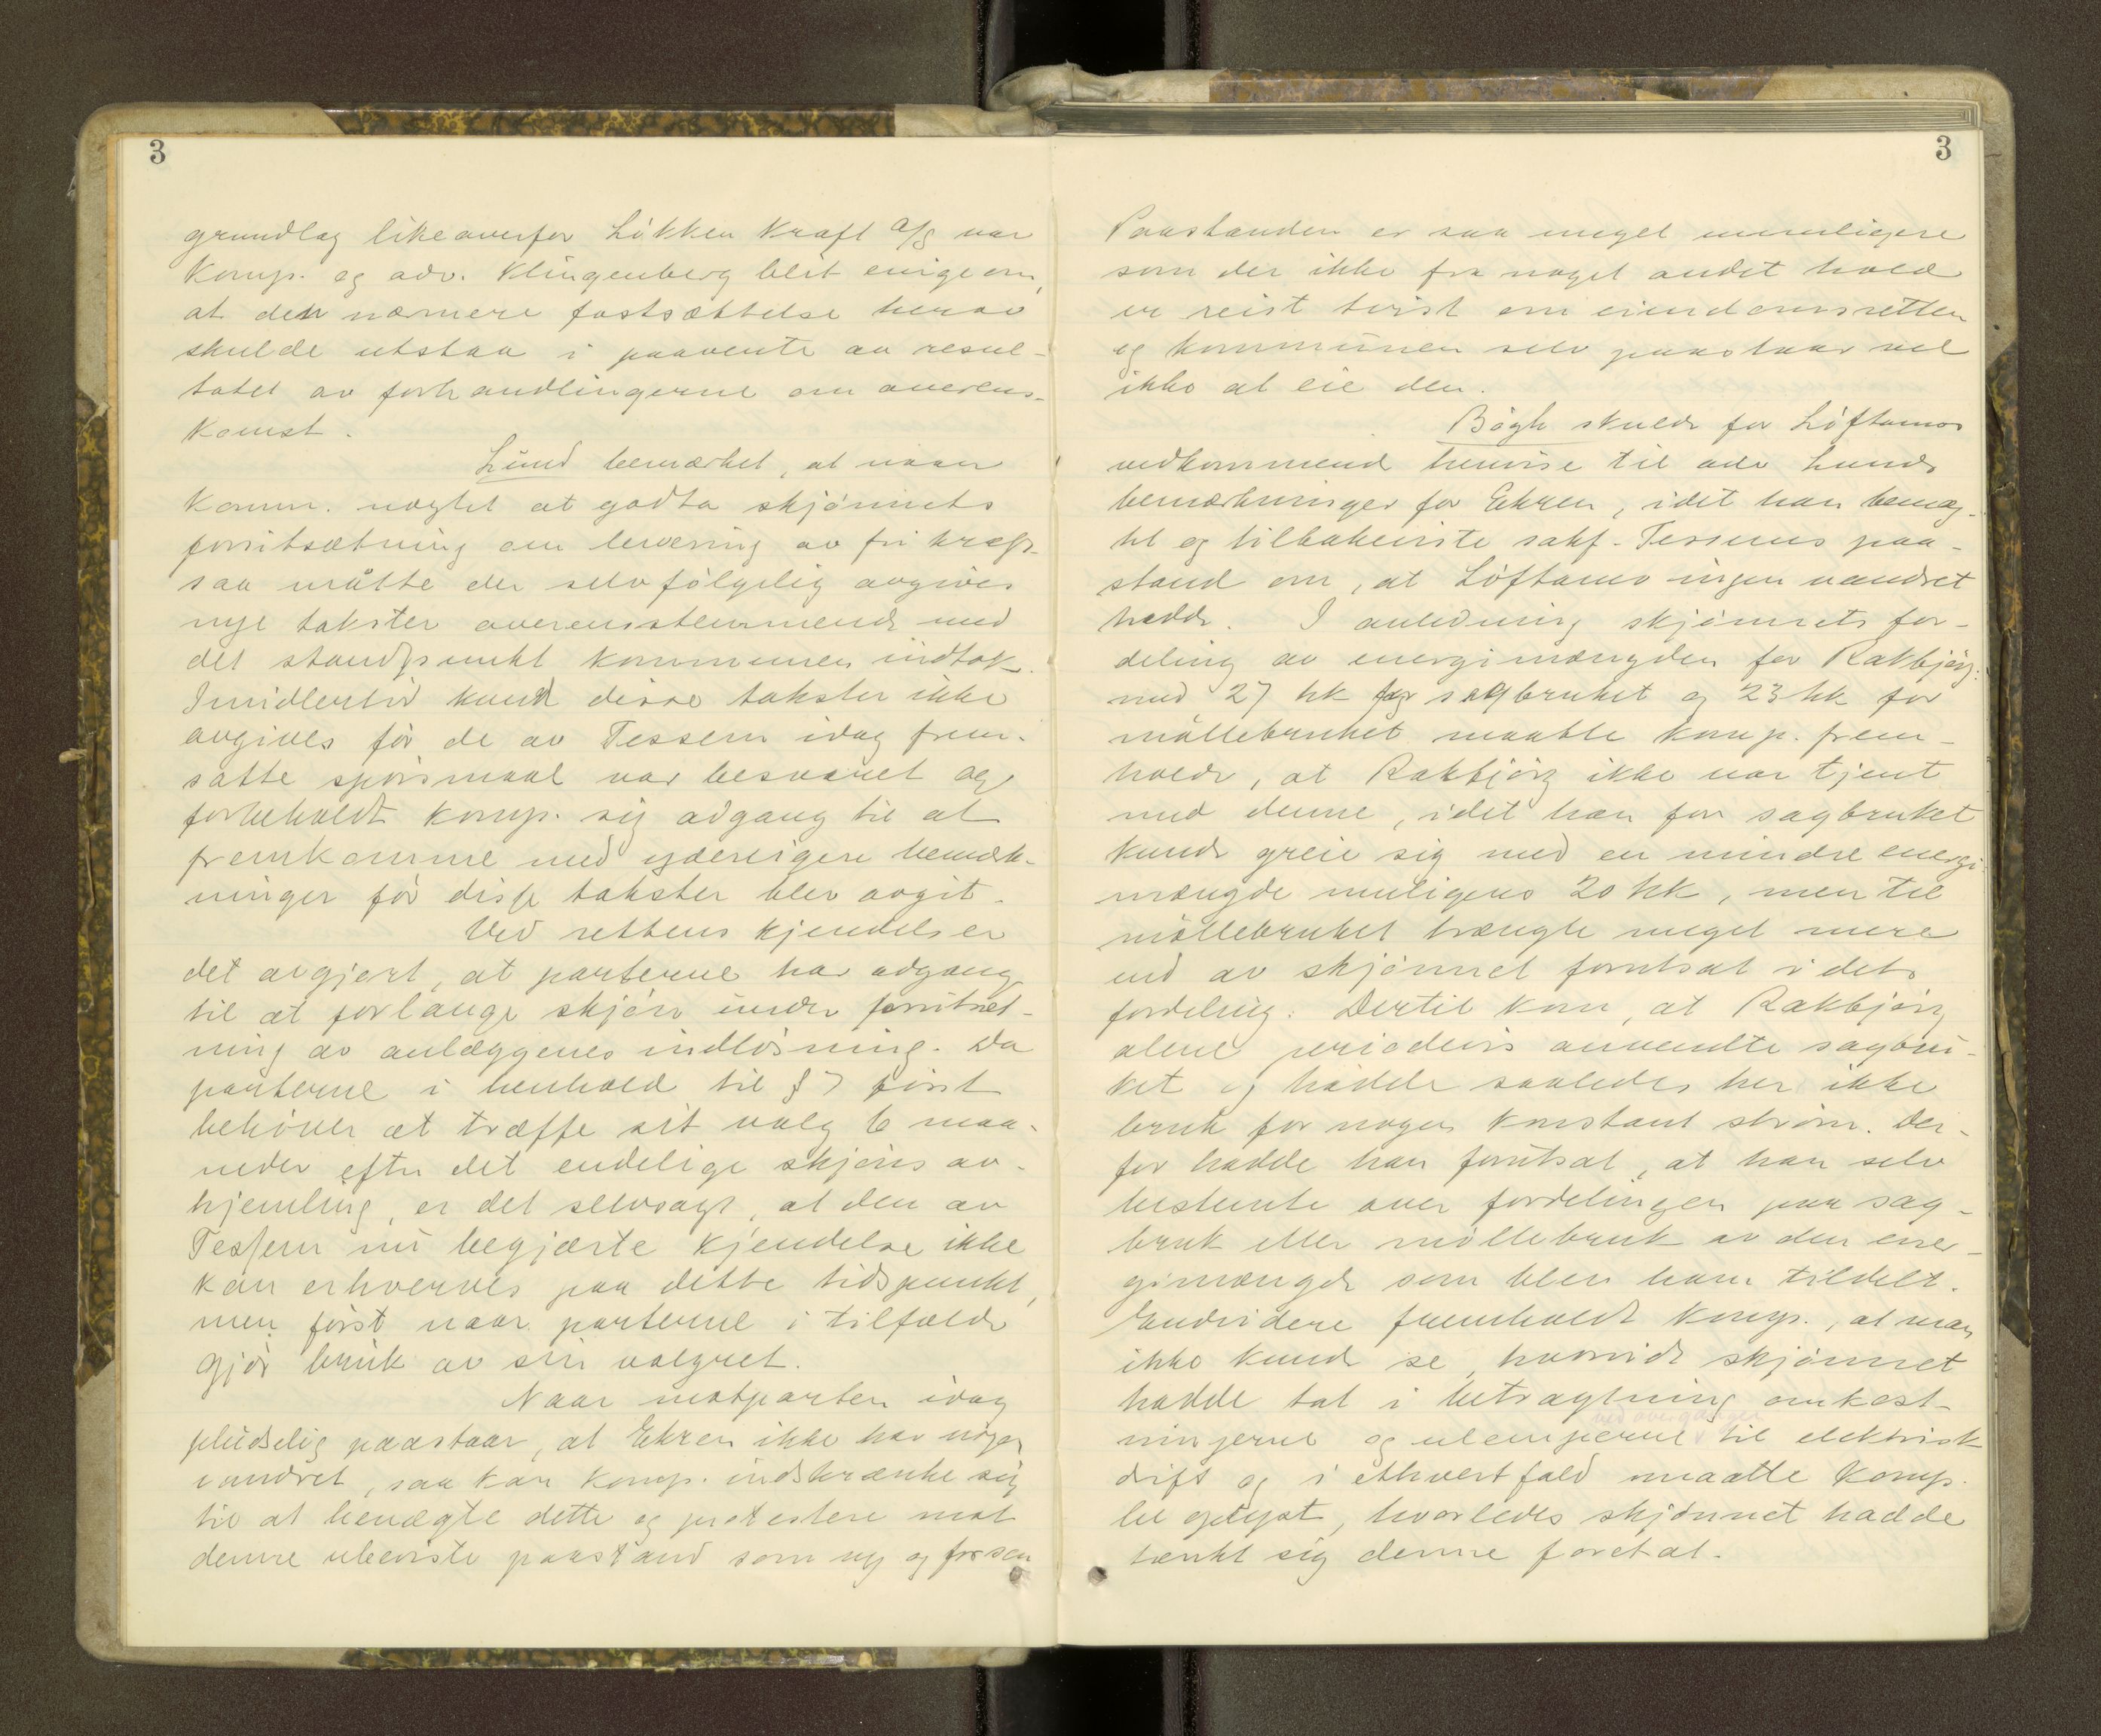 3
grundlag likeoverfor Løkken Kraft A/S var
komp. og adv. Klingenberg blit enige om,
at den nærmere fastsættelse herav
skulde utstaa i paavente av resul-
tatet av forhandlingerne om overens-
komst.
Lund bemærket, at naar
komm. nægtet at godta skjønnets
forutsætning om levering av fri kraft
saa måtte der selvfølgelig avgives
nye takster overensstemmende med
det standpunkt kommunen indtok.
Imidlertid kunde disse takster ikke
avgives før de av Tessem idag frem-
satte spørsmaal var besvaret og
forbeholdt komp. sig adgang til at
fremkomme med yderligere bemærk-
ninger før disse takster blev avgit.
Ved rettens kjendelse er
det avgjort, at parterne har adgang
til at forlange skjøn under forutsæt-
ning av anlæggenes indløsning. Da
parterne i henhold til § 7 først
behøver at træffe sit valg 6 maa-
neder efter det endelige skjøns av-
hjemling, er det selvsagt, at den av
Tessem nu begjærte kjendelse ikke
kan erhverves paa dette tidspunkt,
men først naar parterne i tilfælde
gjør bruk av sin valgret.
Naar motparten idag
pludselig paastaar, at Ekren ikke har nogen
vandret, saa kan komp. indskrænke sig
til at benægte dette og protestere mot
denne ubeviste paastand som ny og for sen
3
Paastanden er saa meget urimeligere
som der ikke fra noget andet hold
er reist tvist om eiendomsretten
og kommunen selv paastaar vel
ikke at eie den.
Bøgh skulde for Løftamos
vedkommende henvise til adv Lunds
bemærkninger for Ekren, idet han benæg-
tet og tilbakeviste sakf. Tessems paa-
stand om, at Løftamo ingen vandret
hadde. I anledning skjønnets for-
deling av energimængden for Rakbjørg:
med 27 hk for sagbruket og 23 hk for
møllebruket maatte komp. frem-
holde, at Rakbjørg ikke var tjent
med denne, idet han for sagbruket
kunde greie sig med en mindre energi-
mængde muligens 20 hk, men til
møllebruket trængte meget mere
end av skjønnet forutsat i dets
fordeling. Dertil kom, at Rakbjørg
alene periodevis anvendte sagbru-
ket og hadde saaledes her ikke
bruk for nogen konstant strøm. Der-
for hadde han forutsat, at han selv
bestemte over fordelingen paa sag-
bruk eller møllebruk av den ener-
gimængde som blev ham tildelt.
Endvidere fremholdt komp., at man
ikke kunde se, hvorvidt skjønnet
hadde tat i betragtning omkost-
ved overgangen
ningerne og ulemperne til elektrisk
drift og i ethvert fald maatte komp.
be oplyst, hvorledes skjønnet hadde
tænkt sig denne foretat.